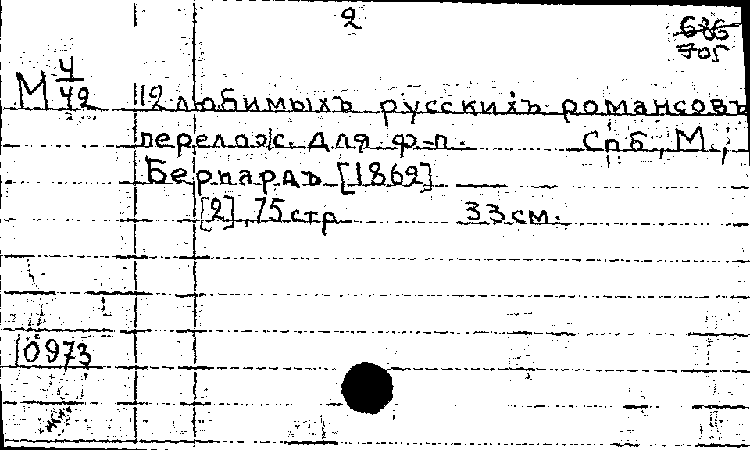 2
686
705
М 4/42
12 любимыхъ русскихъ романсовъ
перелож. для ф-п. Спб., М.,
Бернардъ [1862]
[2], 75 стр 33 см.
10973